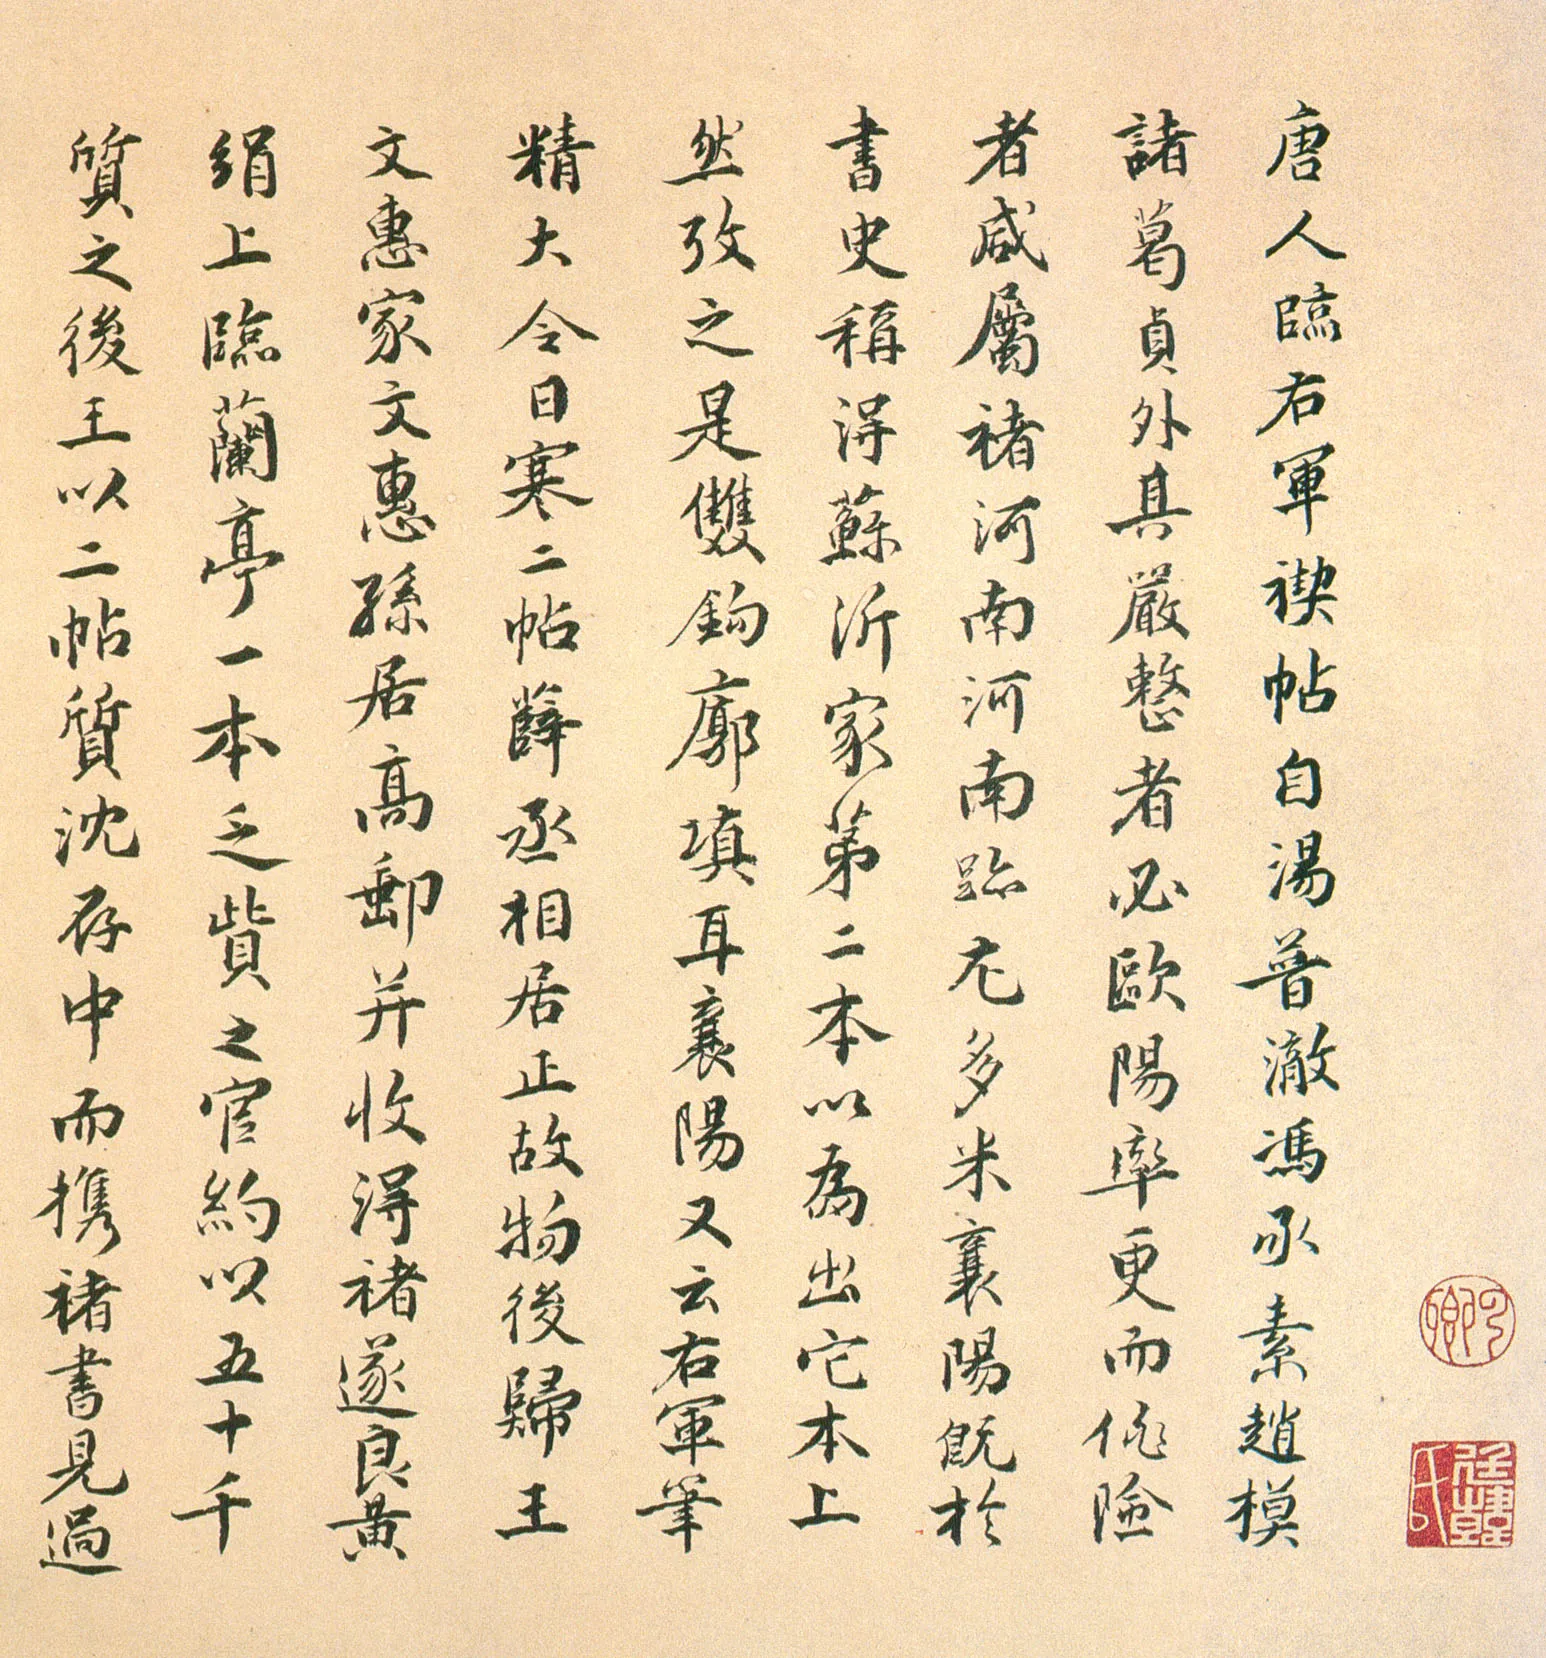 唐人臨右軍禊帖自湯普澈馮承素趙模
諸葛貞外其嚴整者必歐陽率更而佻險
者咸屬褚河南河南跡尤多米襄陽既於
書史稱得蘇沂家第二本以為出它本上
然攷之是雙鈎廓填耳襄陽又云右軍筆
精大令日寒二帖薛丞相居正故物後歸王
文惠家文惠孫居高郵并收得褚遂良黃
絹上臨蘭亭一本乏貲之官約以五十千
質之後王以二帖質沈存中而携褚書見過
云卿
廷韓氏